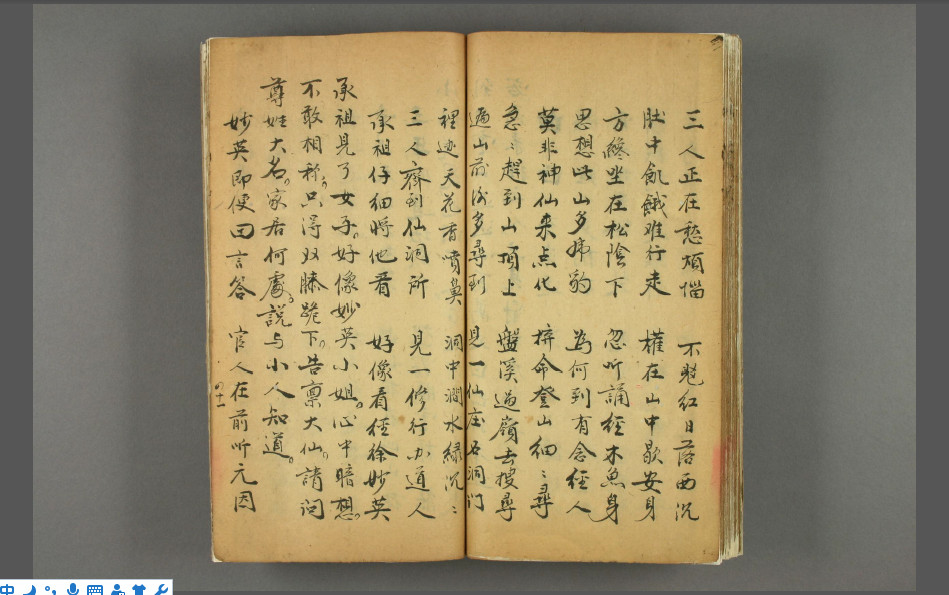 三人正在愁煩惱 不覺紅日落西沉
肚中飢餓难行走 權在山中歇安身
方纔坐在松陰下 忽听誦經木魚声
思想此山多虎豹 為何到有念經人
莫非神仙來点化 捹命登山細〻尋
急〻趕到山頂上 盤溪過嶺去搜尋
遍山前後多尋到 見一仙庄石洞门
裡边天花香噴鼻 洞中澗水綠沉〻
三人齊到仙洞所 見一修行办道人
承祖仔細將他看 好像看經徐妙英
承祖見了女子。好像妙英小姐。心中暗想。
不敢相称。只得双膝跪下。告禀大仙。請问
尊姓大名。家居何處。説与小人知道。
妙英即便回言答 官人在前听元因
四十一
中